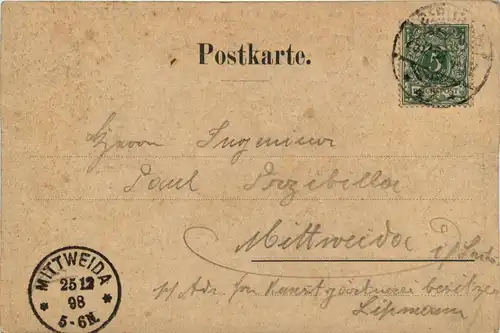 Postkarte.
5
Herrn Ingenieur
Paul Przibilla
Mittweida i/Sachs.
p/Adr. frn Kunstgärtnereibesitzer
Lipmann
MITTWEIDA
25 12
98
5-6N.